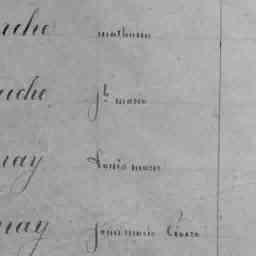 rche mathurin
uche jh marie
nay Louis marie
nay jean marie Cesare